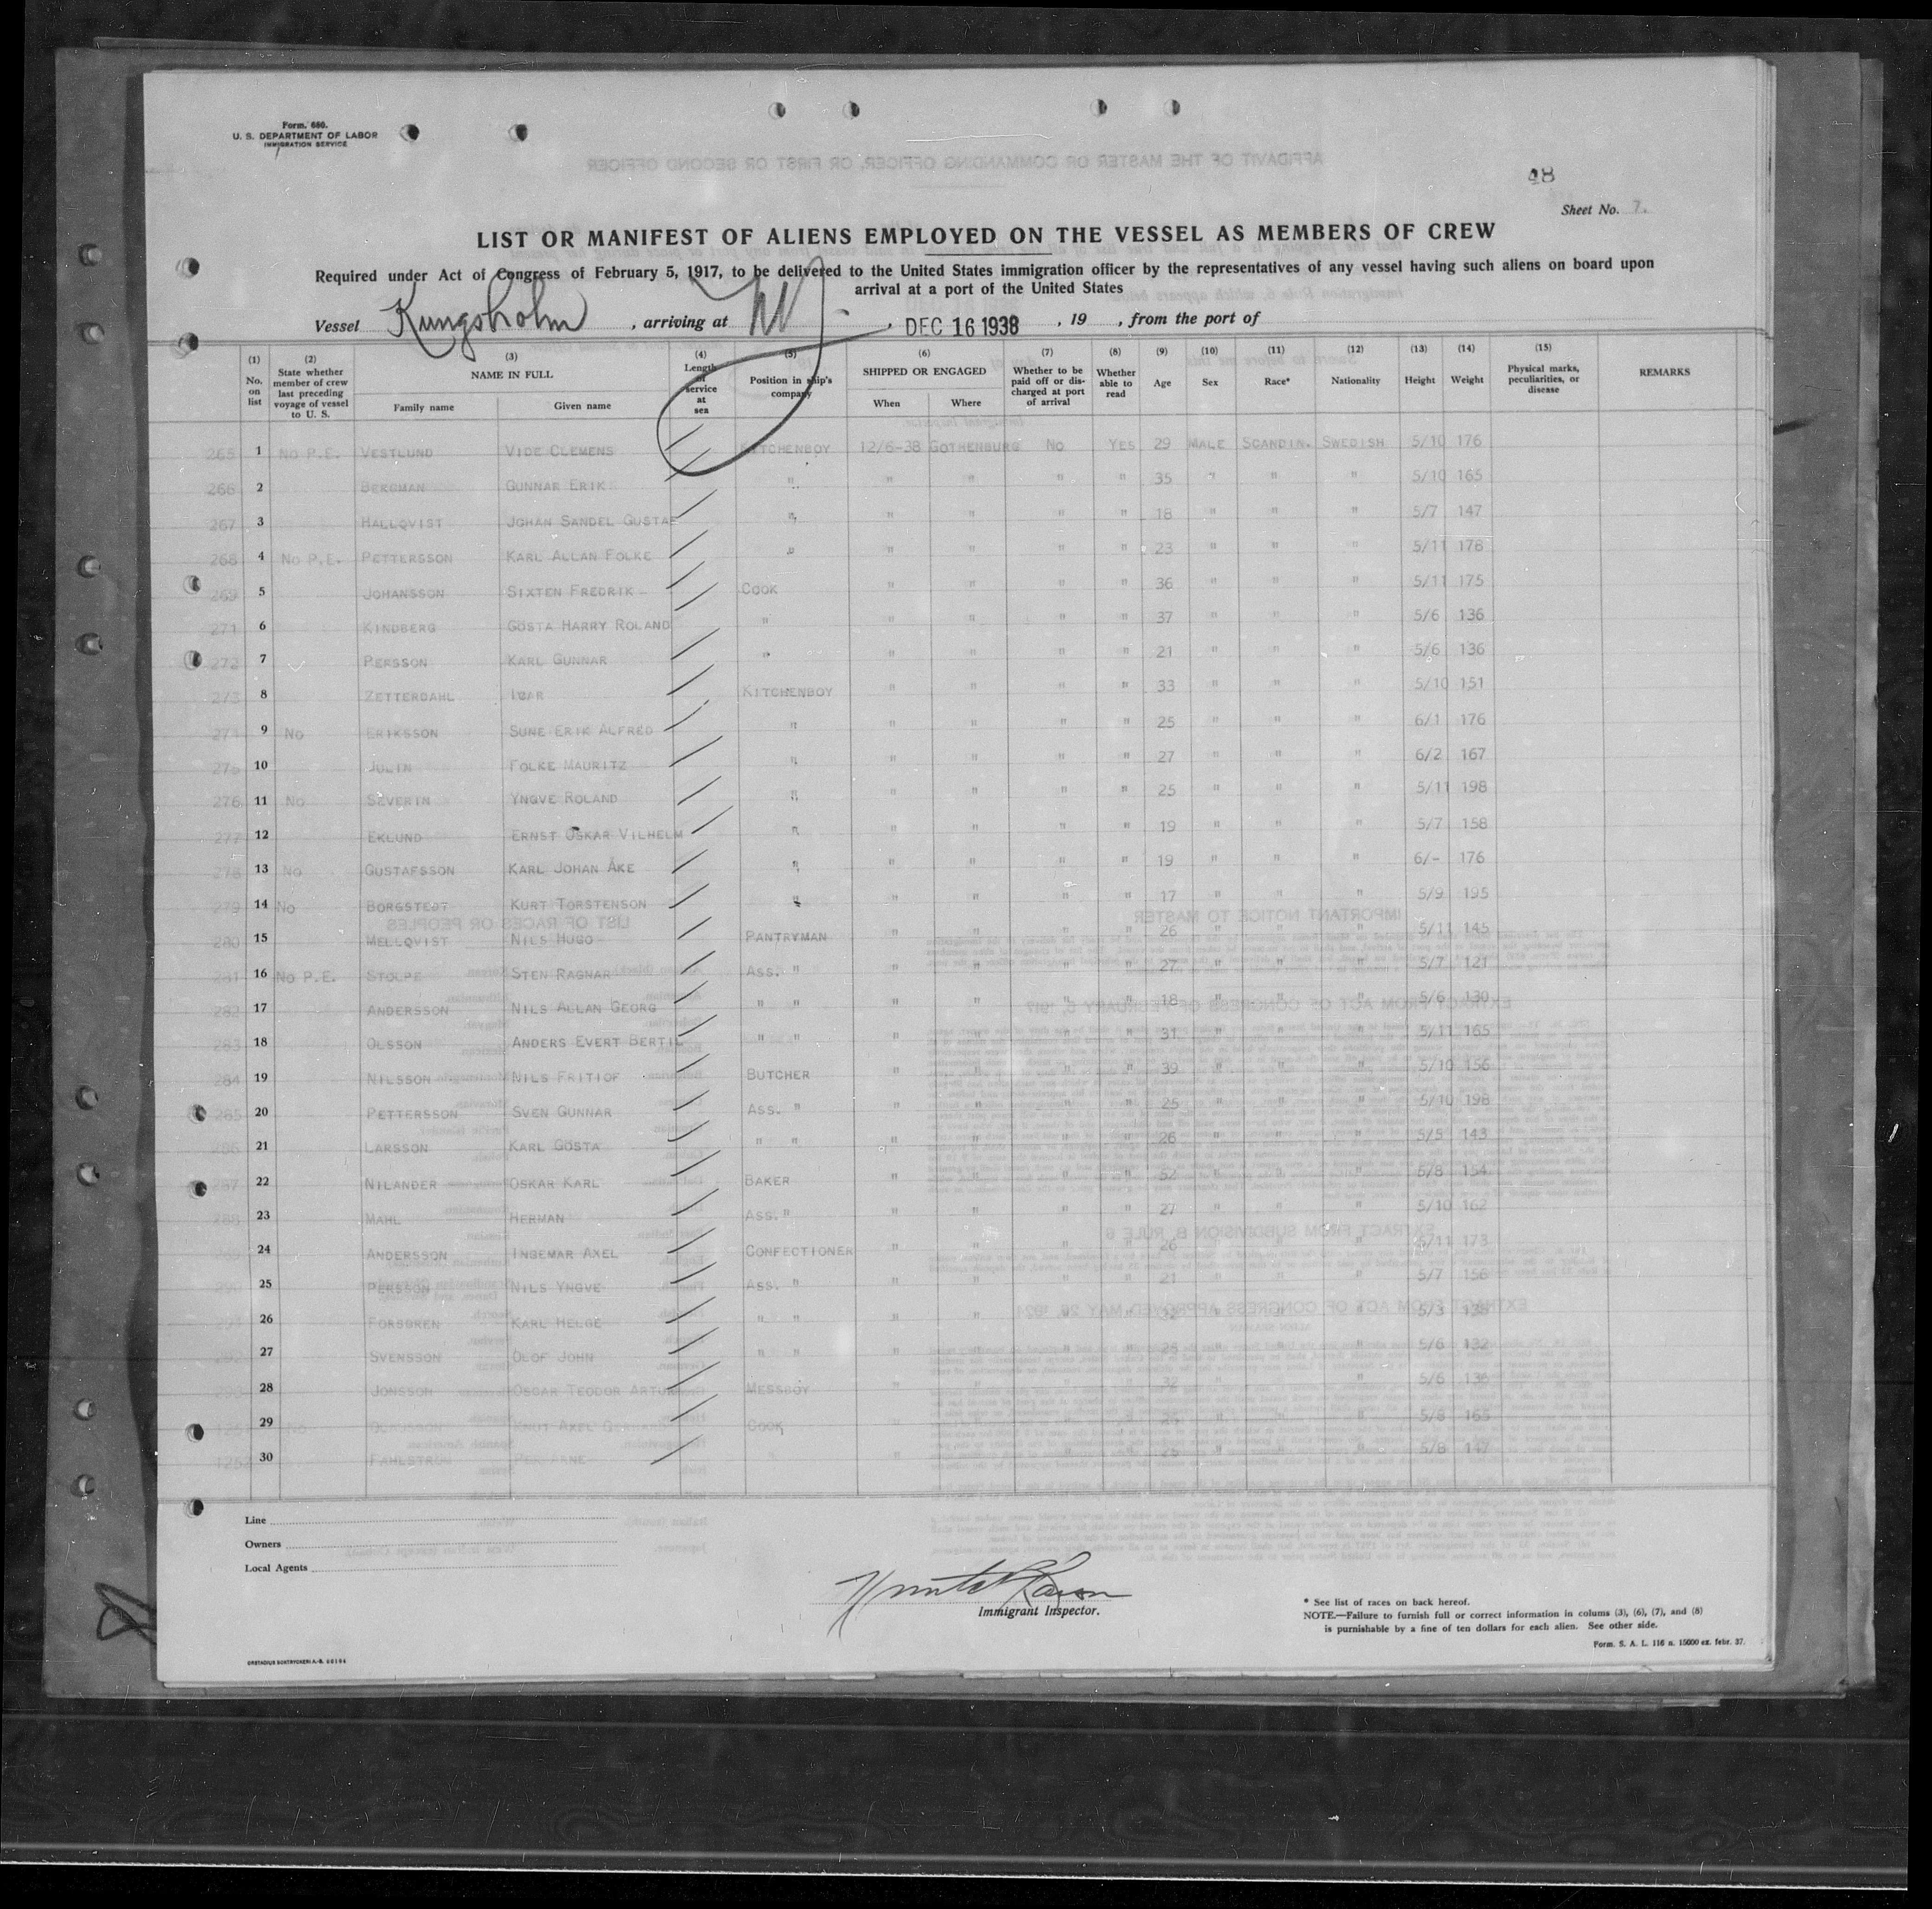 Form. 680.
U. S. DEPARTMENT OF LABOR
IMMIGRATION SERVICE
48
Sheet No. 7.
LIST OR MANIFEST OF ALIENS EMPLOYED ON THE VESSEL AS MEMBERS OF CREW
Required under Act of Congress of February 5, 1917, to be delivered to the United States immigration officer by the representatives of any vessel having such aliens on board upon
arrival at a port of the United States
Vessel Kungsholm, arriving at NY., DEC 16 1938, 19 , from the port of
(1) No. on list (2) State whether member of crew last preceding voyage of vessel to U. S. (3) NAME IN FULL Family name Given name (4) Length of service at sea (5) Position in ship's company (6) SHIPPED OR ENGAGED When Where (7) Whether to be paid off or discharged at port of arrival (8) Whether able to read (9) Age (10) Sex (11) Race* (12) Nationality (13) Height (14) Weight (15) Physical marks, peculiarities, or disease REMARKS
265 1 NO P.E. VESTLUND VIDE CLEMENS KITCHENBOY 12/6-38 GOTHENBURG NO YES 29 MALE SCANDIN. SWEDISH 5/10 176
266 2 BERGMAN GUNNAR ERIK " " " " " 35 " " " 5/10 165
267 3 HALLQVIST JOHAN SANDEL GUSTAF " " " " " 18 " " " 5/7 147
268 4 NO P.E. PETTERSSON KARL ALLAN FOLKE " " " " " 23 " " " 5/11 176
269 5 JOHANSSON SIXTEN FREDRIK COOK " " " " 36 " " " 5/11 175
271 6 KINDBERG GÖSTA HARRY ROLAND " " " " " 37 " " " 5/6 136
272 7 PERSSON KARL GUNNAR " " " " " 21 " " " 5/6 136
273 8 ZETTERDAHL IVAR KITCHENBOY " " " " 33 " " " 5/10 151
274 9 NO ERIKSSON SUNE ERIK ALFRED " " " " " 25 " " " 6/1 176
275 10 JULIN FOLKE MAURITZ " " " " " 27 " " " 6/2 167
276 11 NO SEVERIN YNGVE ROLAND " " " " " 25 " " " 5/11 198
277 12 EKLUND ERNST OSKAR VILHELM " " " " " 19 " " " 5/7 158
278 13 NO GUSTAFSSON KARL JOHAN ÅKE " " " " " 19 " " " 6/- 176
279 14 NO BORGSTEDT KURT TORSTENSON " " " " " 17 " " " 5/9 195
280 15 MELLQVIST NILS HUGO PANTRYMAN " " " " 26 " " " 5/11 145
281 16 NO P.E. STOLPE STEN RAGNAR ASS. " " " " " 27 " " " 5/7 121
282 17 ANDERSSON NILS ALLAN GEORG " " " " " " 18 " " " 5/6 130
283 18 OLSSON ANDERS EVERT BERTIL " " " " " " 31 " " " 5/11 165
284 19 NILSSON NILS FRITIOF BUTCHER " " " " 39 " " " 5/10 156
285 20 PETTERSSON SVEN GUNNAR ASS. " " " " " 25 " " " 5/10 198
286 21 LARSSON KARL GÖSTA " " " " " " 26 " " " 5/5 143
287 22 NILANDER OSKAR KARL BAKER " " " " 52 " " " 5/8 154
288 23 MAHL HERMAN ASS. " " " " " 27 " " " 5/10 162
24 ANDERSSON INGEMAR AXEL CONFECTIONER " " " " 26 " " " 5/11 173
25 PERSSON NILS YNGVE ASS. " " " " " 21 " " " 5/7 156
26 FORSGREN KARL HELGE " " " " " " " " " 5/3
27 SVENSSON OLOF JOHN " " " " " " " " " 5/6 132
28 JONSSON OSCAR TEODOR ARTUR MESSBOY " " " 32 " " " 5/6 136
29 KNUT AXEL COOK 5/8 165
30 FAHLSTRÖM PER ARNE " " 5/8 147
Line
Owners
Local Agents
Immigrant Inspector.
* See list of races on back hereof.
NOTE.—Failure to furnish full or correct information in colums (3), (6), (7), and (8)
is purnishable by a fine of ten dollars for each alien. See other side.
Form. S. A. L. 116 n. 15000 ex. febr. 37.